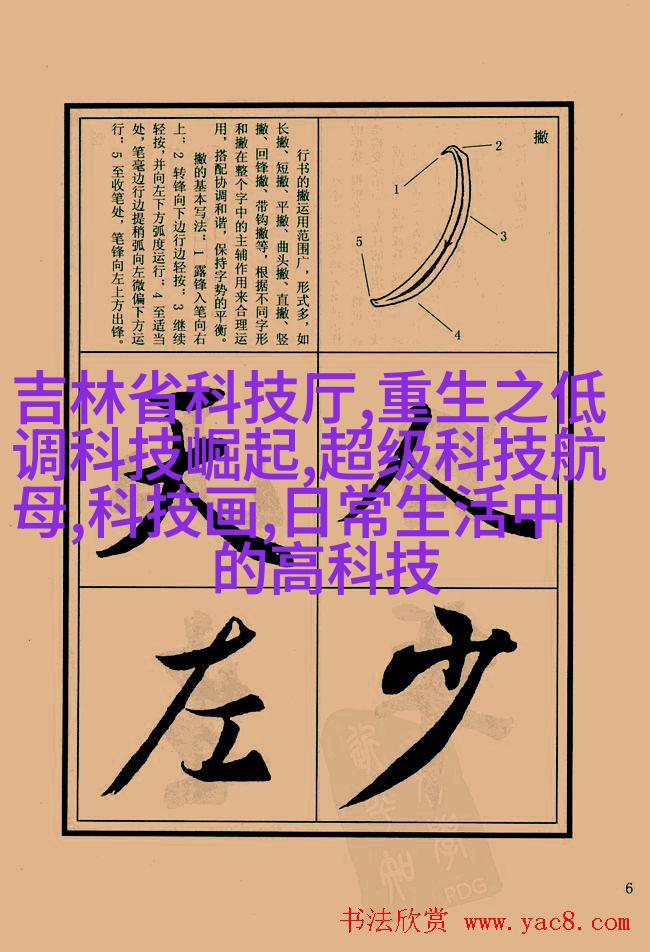 撇
1
2
3
4
5
行书的撇运用范围广，形式多，如
长撇、短撇、平撇、曲头撇、直撇、竖
撇、回锋撇、带钩撇等，根据不同字形
和撇在整个字中的主辅作用来合理运
用，搭配协调和谐，保持字势的平衡。
撇的基本写法：1 露锋入笔向右
上；2 转锋向下边行边轻按；3 继续
轻按，并向左下方弧度运行；4 至适当
处，笔毫边行边提稍弧向左微偏下方运
行；5 至收笔处，笔锋向左上方出锋。
吉林省科技厅,重生之低
调科技崛起,超级科技航
母,科技画,日常生活中
的高科技
人
少
左
PDG
6
书法欣赏 www.yac8.com